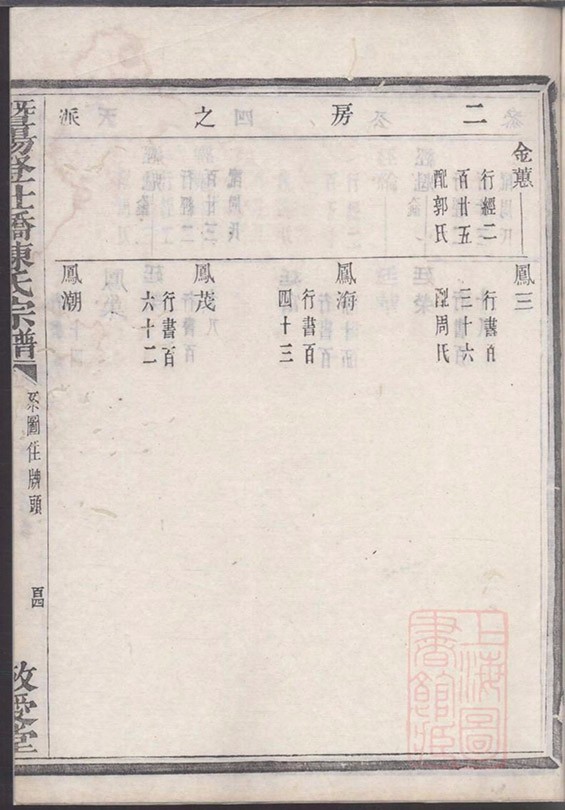 二房之派
金蕙
行經二
百廿五
配郭氏
鳳三
行書百
三十六
配周氏
鳳海
行書百
四十三
鳳茂
行書百
六十二
鳳潮
暨陽登仕橋陳氏宗譜
系圖住牌頭
百四
敬愛堂
上海圖書館藏